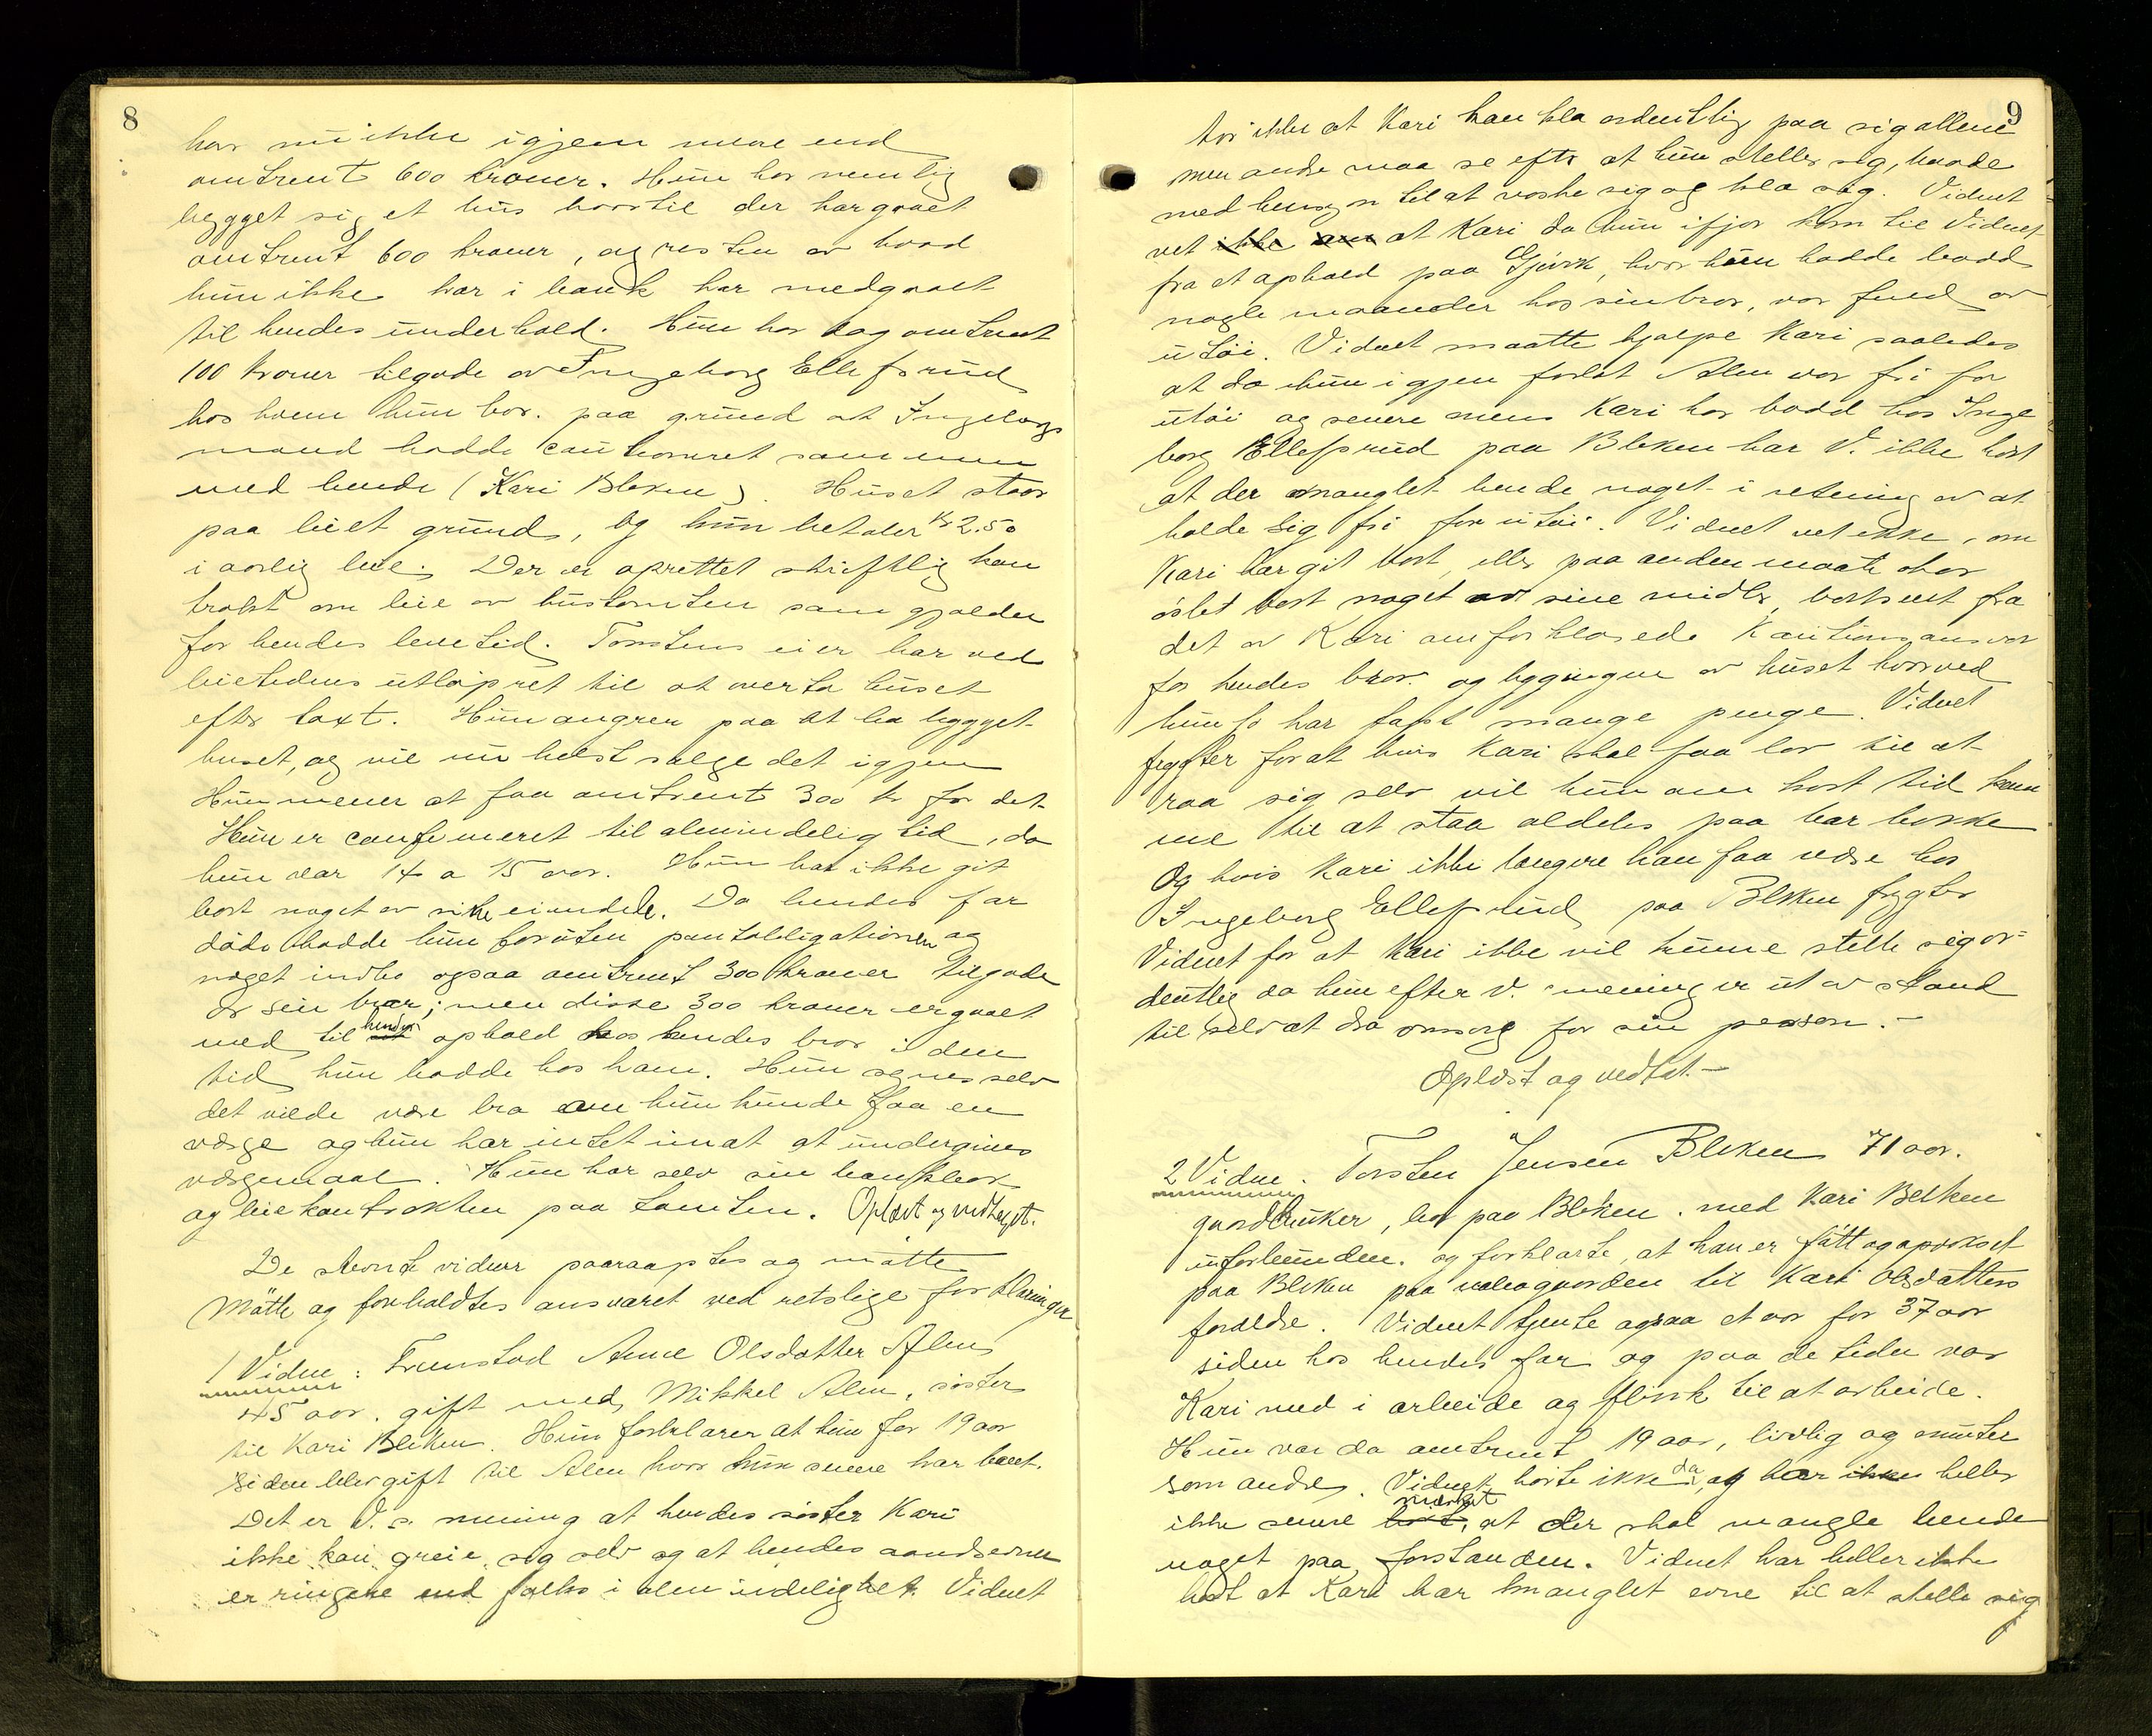 8
har nu ikke igjem mere end
omtrent 600 kroner. Hun har nemlig
bygget sig et hus hvortil der har gaaet
omtrent 600 kroner, og resten av hvad
hun ikke har i bank har medgaaet
til hendes underhold. Hun har dog omtrent
100 kroner tilgode av Ingeborg Ellefsrud
hos hvem hun bor. paa grund at Ingeborgs
mand hadde cautioneret sammen
med hende (Kari Bleken). Huset staar
paa leiet grund, og hun betaler kr 2.50
i aarlig leie. Der er oprettet skriftlig kon
trakt om leie av hustomten som gjælder
for hendes levetid. Tomtens eier har ved
leietidens utløp ret til at overta huset
efter taxt. Hun angrer paa at ha bygget
huset, og vil nu helst sælge det igjen
Hun mener at faa omtrent 300 kr for det
Hun er confirmeret til almindelig tid, da
hun var 14 a 15 aar. Hun har ikke git
bort noget av sine eiendele. Da hendes far
døde hadde hun foruten pantobligationen og
noget indbo ogsaa omtrent 300 kroner tilgode
av sin bror; men disse 300 kroner er gaaet
med til hendes ophold hos hendes bror i den
tid hun bodde hos ham. Hun synes selv
det vilde være bra om hun kunde faa en
værge og hun har intet imot at undergives
værgemaal. Hun har selv sin bankbok
og leiekontrakten paa tomten. Oplæst og vedtaget.
De stevnte vidner paaraaptes og møtte
Møtte og forholdtes ansvaret ved retslige forklaringer
1 Vidne: Fremstod Anne Olsdatter Alm
45 aar. gift med Mikkel Alm, søster
til Kari Bleken. Hun forklarer at hun for 19 aar
siden blev gift til Alm hvor hun senere har boet.
Det er V.s. mening at hendes søster Kari
ikke kan greie sig selv og at hendes aandsevner
er ringere end folks i almindelighet. Vidnet
9
tror ikke at Kari kan klæ ordentlig paa sig allene
men andre maa se efter at hun steller sig, baade
med hensyn til at vaske sig og klæ sig. Vidnet
vet ikke om at Kari da hun ifjor kom til Vidnet
fra et ophold paa Gjøvik, hvor hun hadde bodd
nogle maaneder hos sin bror, var fuld av
utøi. Vidnet maatte hjælpe Kari saaledes
at da hun igjen forlot Alm var fri for
utøi og senere mens Kari har bodd hos Inge
borg Ellefsrud paa Bleken har V. ikke hørt
at der manglet hende noget i retning av at
holde sig fri for utøi. Vidnet vet ikke, om
Kari har git bort, eller paa anden maate har
øslet bort noget av sine midler, bortseet fra
det av Kari omforklarede Kautionsansvar
for hendes bror og bygningen av huset hvorved
hun jo har tapt mange penge. Vidnet
frygter for at hvis Kari skal faa lov til at
raa sig selv vil hun om kort tid kom
me til at staa aldeles paa bar bakke
Og hvis Kari ikke længere kan faa være hos
Ingeborg Ellefsrud paa Bleken frygter
Vidnet for at Kari ikke vil kunne stelle sig or-
dentlig da hun efter V. mening er ut av stand
til selv at dra omsorg for sin person.-
Oplæst og vedtat.-
2 Vidne. Torsten Jensen Bleken 71 aar.
gaardbruker, bor paa Bleken. med Kari Bleken
uforbunden. og forklarte, at han er født og opvokset
paa Bleken paa nabogaarden til Kari Olsdatters
forældre. Vidnet tjente ogsaa et aar for 37 aar
siden hos hendes far og paa de tider var
Kari med i arbeide og flink til at arbeide.
Hun var da omtrent 19 aar, livlig og munter
som andre. Vidnet hørte ikke da, og har ikke heller
ikke senere hørt mærket, at der skal mangle hende
noget paa forstanden. Vidnet har heller ikke
hørt at Kari har manglet evne til at stelle sig